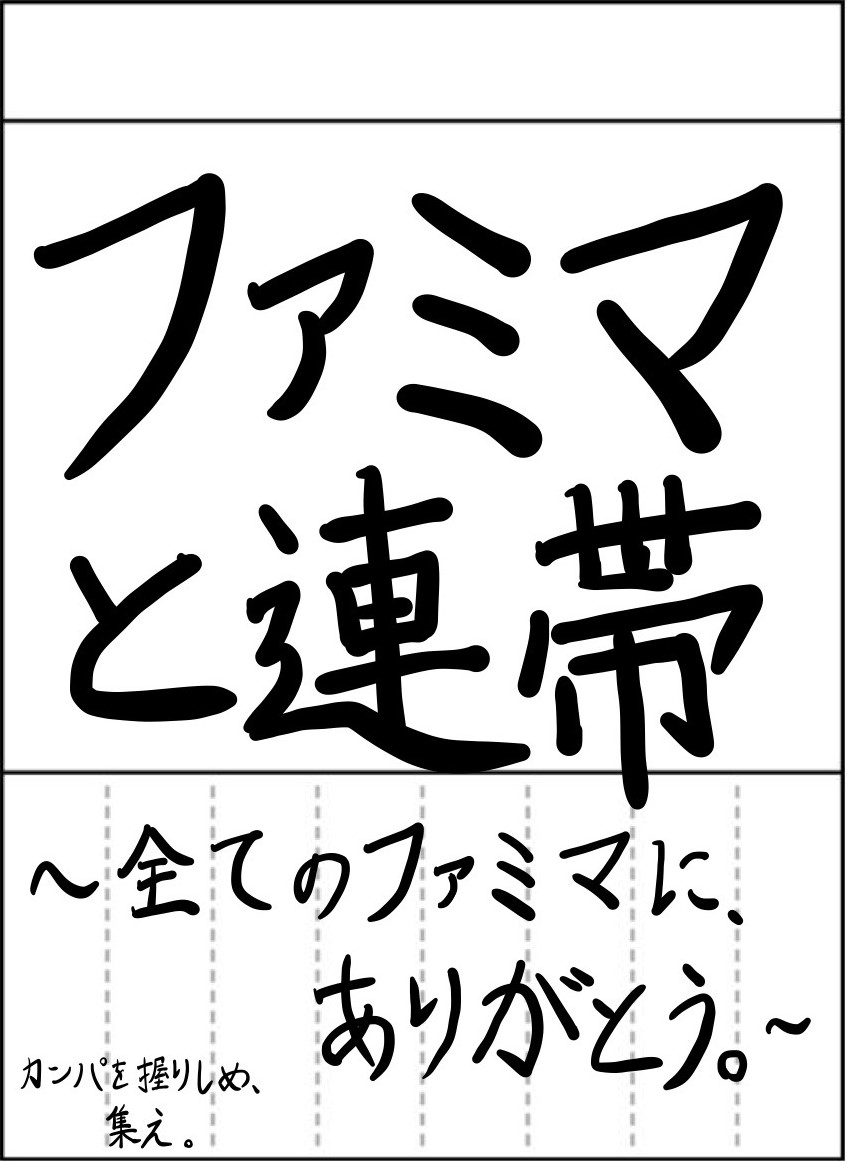 ファミマ
と連帯
～全てのファミマに、
ありがとう。～
カンパを握りしめ、
集え。